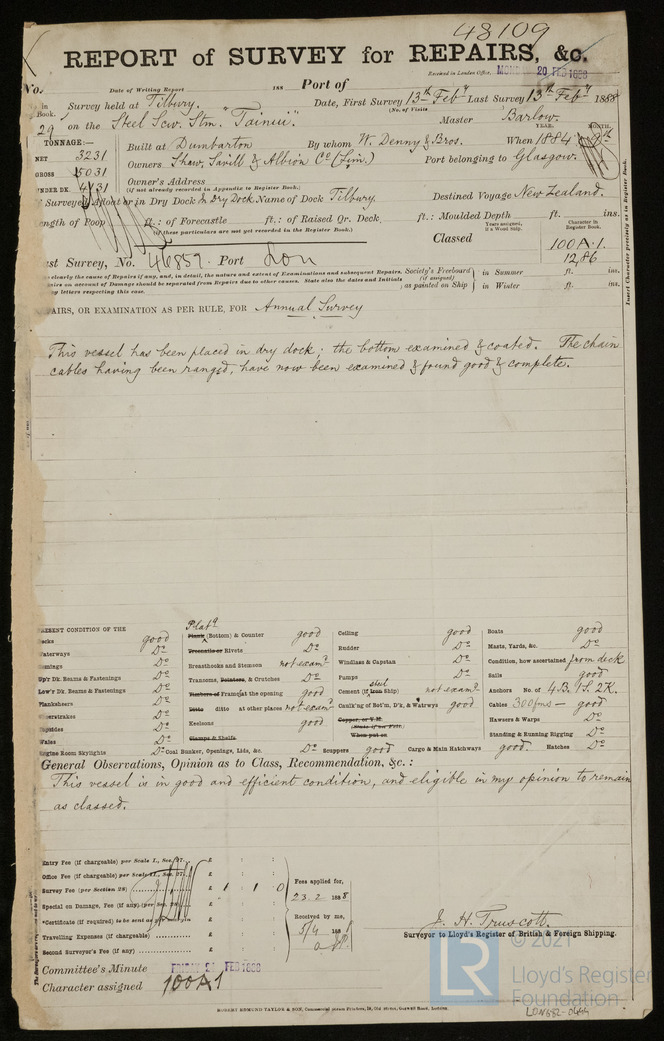 48109
REPORT of SURVEY for REPAIRS, &c.
Received in London Office, MOND 20 FEB 1888
No. Date of Writing Report 188 Port of
No. in Survey held at Tilbury. Date, First Survey 13th Feby Last Survey 13th Feby 1888
(No. of Visits
Book.
29 on the Steel Scw. Stm. "Tainui". Master Barlow.
TONNAGE:— Built at Dumbarton By whom W. Denny & Bros. When 1884
YEAR. MONTH.
NET 3231
GROSS 5031
UNDER DK.
Owners Shaw, Savill & Albion Co (Lim.) Port belonging to Glasgow.
Owner's Address
(if not already recorded in Appendix to Register Book.)
If Surveyed Afloat or in Dry Dock In Dry Dock Name of Dock Tilbury. Destined Voyage New Zealand.
Length of Poop ft.: of Forecastle ft.: of Raised Qr. Deck ft.: Moulded Depth ft. ins.
(if these particulars are not yet recorded in the Register Book.)
Years assigned, if a Wood Ship. Character in Register Book.
Classed 100A.1.
12,86
Last Survey, No. 46857. Port Lon
Society's Freeboard (if assigned) as painted on Ship in Summer ft. ins.
in Winter ft. ins.
Insert Character precisely as in Register Book.
REPAIRS, OR EXAMINATION AS PER RULE, FOR Annual Survey
This vessel has been placed in dry dock; the bottom examined & coated. The chain
cables having been ranged, have now been examined & found good & complete.
PRESENT CONDITION OF THE
Decks good
Waterways Do
Comings Do
Up'r Dk. Beams & Fastenings Do
Low'r Dk. Beams & Fastenings Do
Planksheers Do
Do
Topsides Do
Wales Do
Engine Room Skylights Do
Platg
Plank (Bottom) & Counter good
Treenails or Rivets Do
Breasthooks and Stemson not examd
Transoms, Pointers, & Crutches Do
Timbers or Frames at the opening good
Ditto ditto at other places not examd
Keelsons good
Clamps & Shelfs
Coal Bunker, Openings, Lids, &c. Do
Ceiling good
Rudder Do
Windlass & Capstan Do
Pumps Do
steel
Cement (if Iron Ship) not examd
Caulk'ng of Bot'm, D'k, & Watrwys good
Copper, or Y.M.
When put on
Scuppers good Cargo & Main Hatchways good. Hatches Do
Boats good
Masts, Yards, &c. Do
Condition, how ascertained from deck
Sails good
Anchors No. of 4B. 1S. 2K.
Cables 300 fms — good
Hawsers & Warps Do
Standing & Running Rigging Do
General Observations, Opinion as to Class, Recommendation, &c.:
This vessel is in good and efficient condition, and eligible in my opinion to remain
as classed.
Entry Fee (if chargeable) per Scale I., Sec. 27. £ : :
Office Fee (if chargeable) per Scale II., Sec. 27. £ : :
Survey Fee (per Section 28) £ 1 : 1 : 0
Special on Damage, Fee (if any) £ : :
*Certificate (if required) to be sent as £ : :
Travelling Expenses (if chargeable) £ : :
Second Surveyor's Fee (if any) £ : :
Fees applied for,
23.2 1888
Received by me,
5/4 1888
J. H. Truscott.
Surveyor to Lloyd's Register of British & Foreign Shipping.
Committee's Minute FRIDAY 2 FEB 1888
Character assigned 100A1
ROBERT EDMUND TAYLOR & SON, Commercial steam Printers, 19, Old street, Goswell Road, London.
LR
© 2021
Lloyd's Register
Foundation